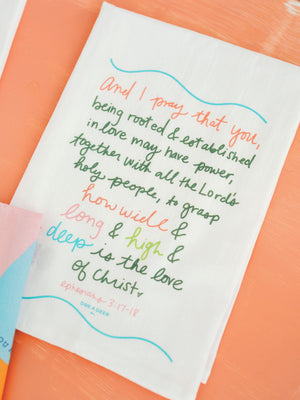 And I pray that you,
being rooted & established
in love may have power,
together with all the Lord's
holy people, to grasp
how wide &
long & high &
deep is the love
of Christ
ephesians 3:17-18